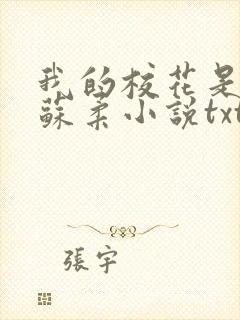 我的校花是
蘇柔小說txt
張宇